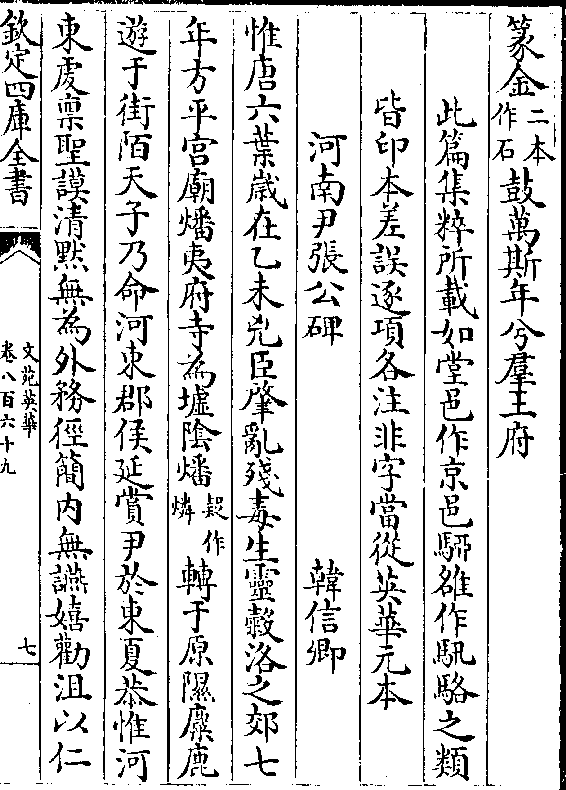 篆金二本作石鼓萬斯年兮羣王府
此篇集粹所載如堂邑作京邑騧雒作駠駱之類
皆印本差誤逐項各注非字當從英華元本
河南尹張公碑　韓信卿
惟唐六葉歲在乙未兇臣肇亂殘毒生靈穀洛之郊七
年方平宮廟燔夷府寺為墟陰燐疑作燐轉于原隰麋鹿
遊于街陌天子乃命河東郡侯延賞尹於東夏恭惟河
東虔稟聖謨清默無為外務徑簡內無讌嬉勸沮以仁
欽定四庫全書
文苑英華
卷八百六十九
七